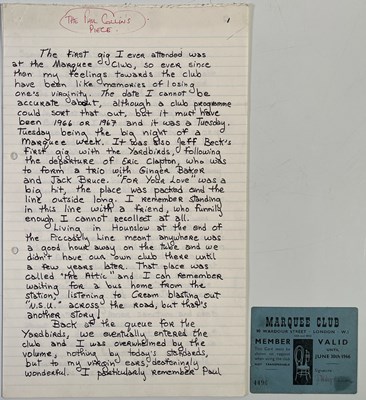 THE PHIL COLLINS
PIECE
1
The first gig I ever attended was
at the Marquee Club, so ever since
then my feelings towards the club
have been like memories of losing
one's virginity. The date I cannot be
accurate about, although a club programme
could sort that out, but it must have
been 1966 or 1967 and it was a Tuesday,
Tuesday being the big night of a
Marquee week. It was also Jeff Beck's
first gig with the Yardbirds, following
the departure of Eric Clapton, who was
to form a trio with Ginger Baker
and Jack Bruce. "For Your Love" was a
big hit, the place was packed and the
line outside long. I remember standing
in this line with a friend, who funnily
enough I cannot recollect at all.
Living in Hounslow at the end of
the Piccadilly Line meant anywhere was
a good hour away on the tube and we
didn't have our own club there until
a few years later. That place was
called "The Attic" and I can remember
waiting for a bus home from the
station, listening to Cream blasting out
"N.S.U." across the road, but that's
another story!
Back at the queue for the
Yardbirds, we eventually entered the
club and I was overwhelmed by the
volume, nothing by today's standards,
but to my virgin ears, deafeningly
wonderful. I particularly remember Paul
MARQUEE CLUB
90 WARDOUR STREET LONDON W.1
MEMBER
VALID
UNTIL
NOT TRANSFERABLE